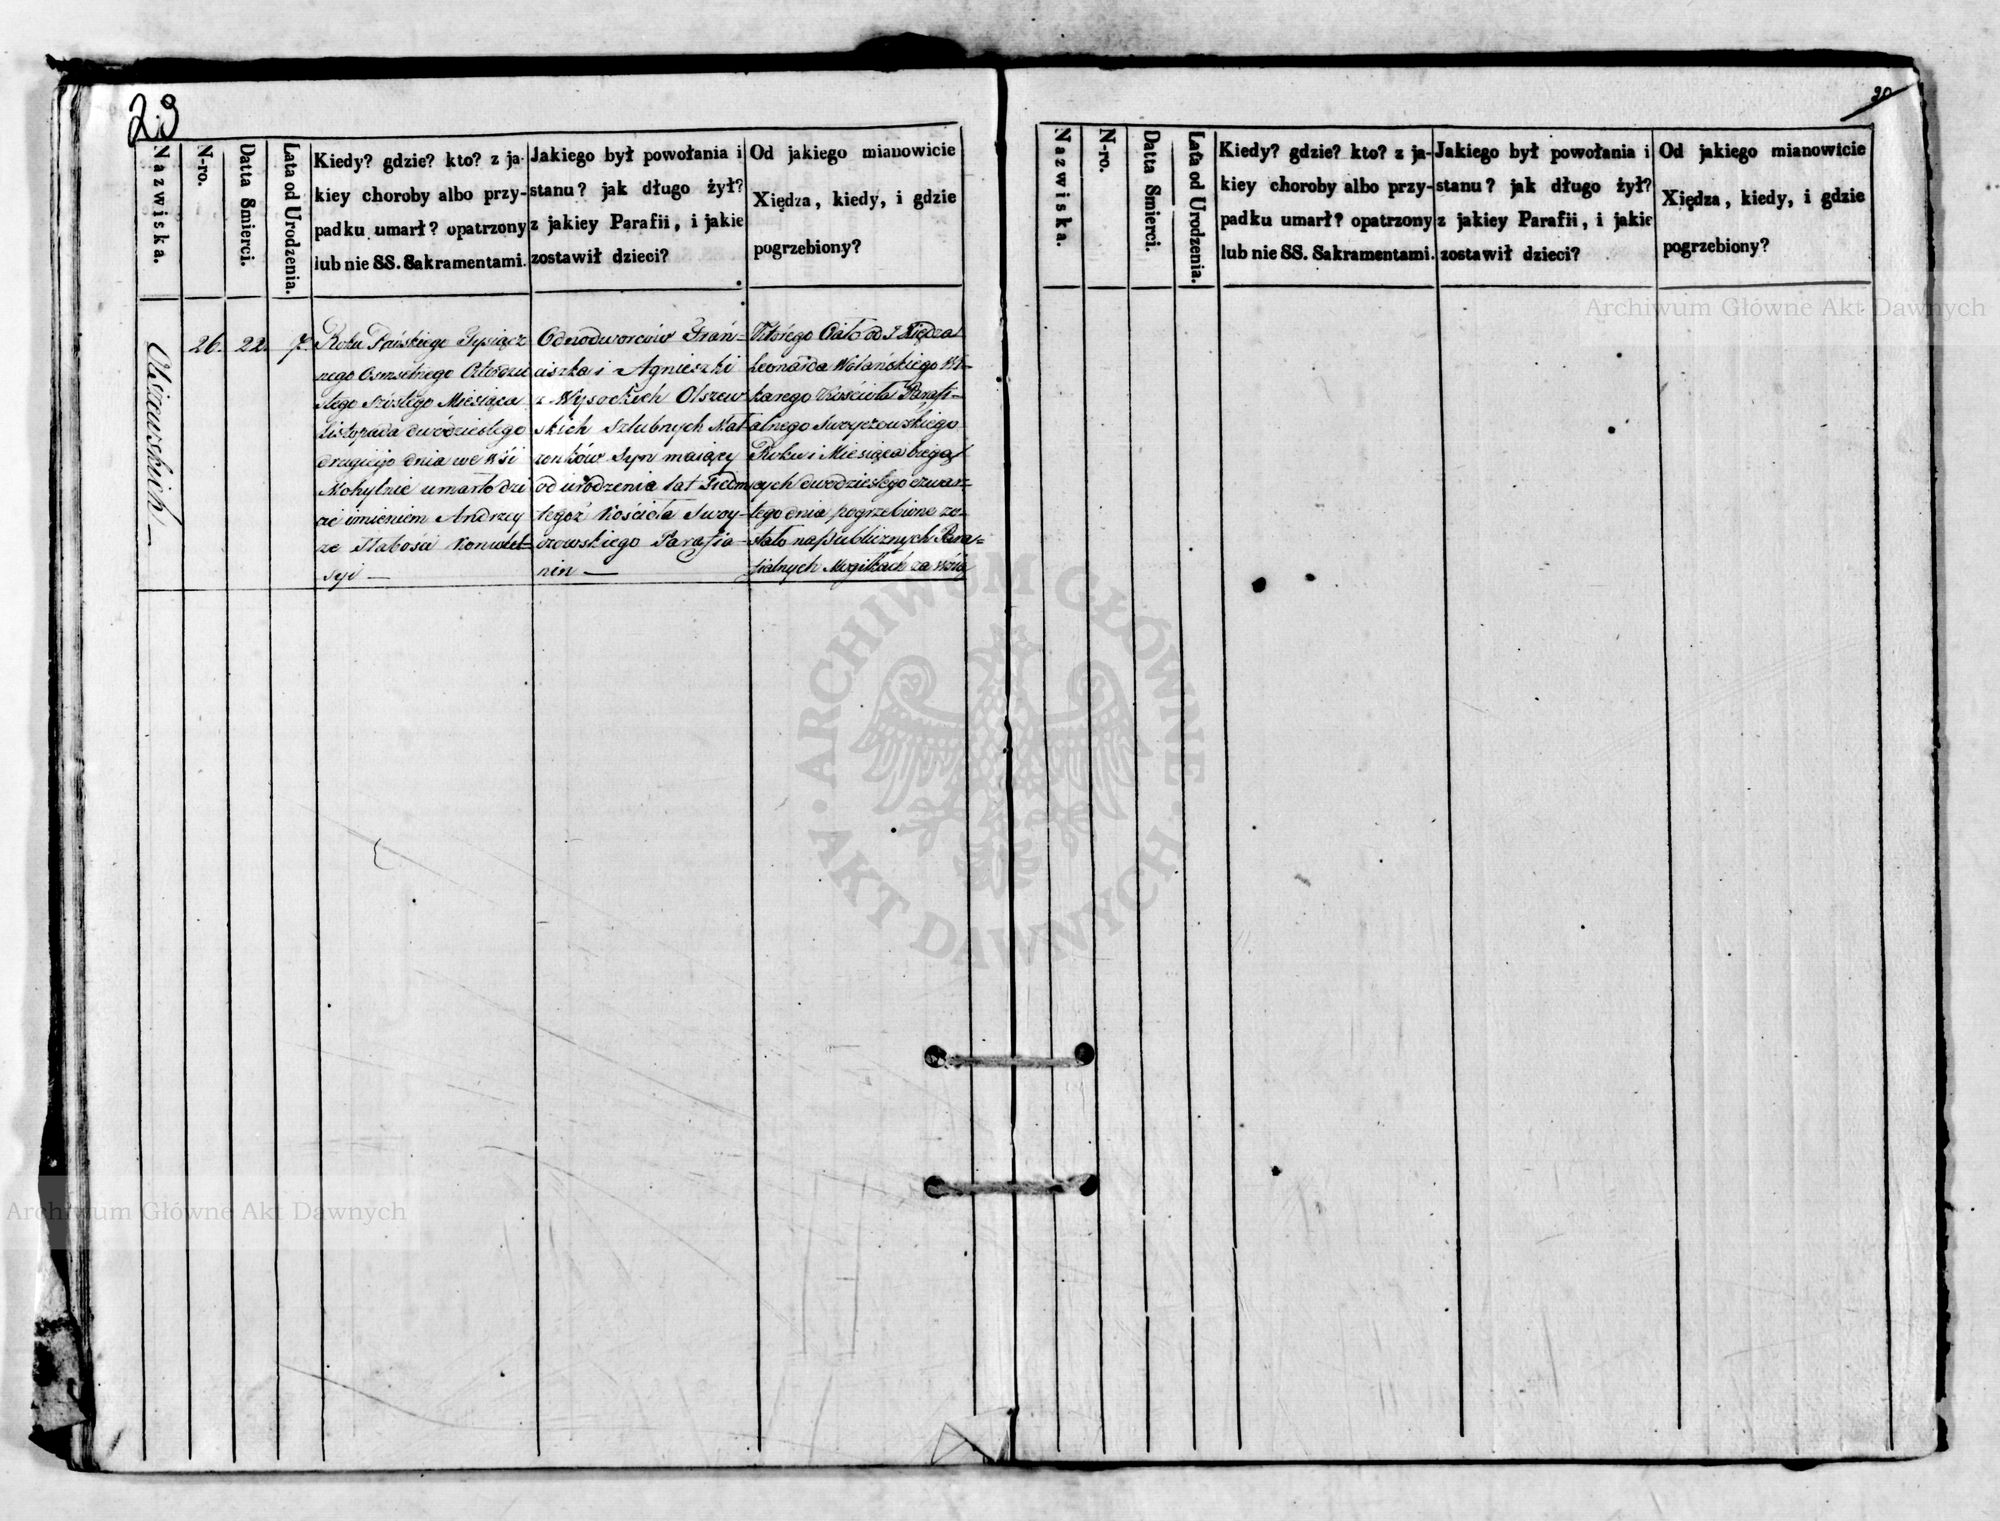 23
Nazwiska.
N-ro.
Datta Smierci.
Lata od Urodzenia.
Kiedy? gdzie? kto? z ja-
kiey choroby albo przy-
padku umarł? opatrzony
lub nie SS. Sakramentami.
Jakiego był powołania i
stanu? jak długo żył?
z jakiey Parafii, i jakie
zostawił dzieci?
Od jakiego mianowicie
Xiędza, kiedy, i gdzie
pogrzebiony?
Olszewskich
26.
22.
7.
Roku Pańskiego Tysiącz
nego Osmsetnego Czterdzie
stego Szóstego Miesiąca
Listopada dwódziestego
drugiego dnia we wsi
Mohylnie umarło dzi
cie imieniem Andrzey
ze Słabości Konwul-
syi
Odnodworców Fran-
ciszka i Agnieszki
z Wysockich Olszew
skich Szlubnych Mał-
żonków Syn maiący
od urodzenia lat Siedm
tegoż Kościoła Swoy-
czowskiego Parafia-
nin
Którego Ciało od J Xiędza
Leonarda Wolańskiego Wi-
karego Kościoła Parafi-
alnego Swoyczowskiego
Roku i Miesiąca bieżą
cych dwodziestego czwar-
tego dnia pogrzebione zo-
stało na publicznych Para-
fialnych Mogiłkach za wsią
20
Nazwiska.
N-ro.
Datta Smierci.
Lata od Urodzenia.
Kiedy? gdzie? kto? z ja-
kiey choroby albo przy-
padku umarł? opatrzony
lub nie SS. Sakramentami.
Jakiego był powołania i
stanu? jak długo żył?
z jakiey Parafii, i jakie
zostawił dzieci?
Od jakiego mianowicie
Xiędza, kiedy, i gdzie
pogrzebiony?
Archiwum Główne Akt Dawnych
ARCHIWUM GŁÓWNE
AKT DAWNYCH
Archiwum Główne Akt Dawnych